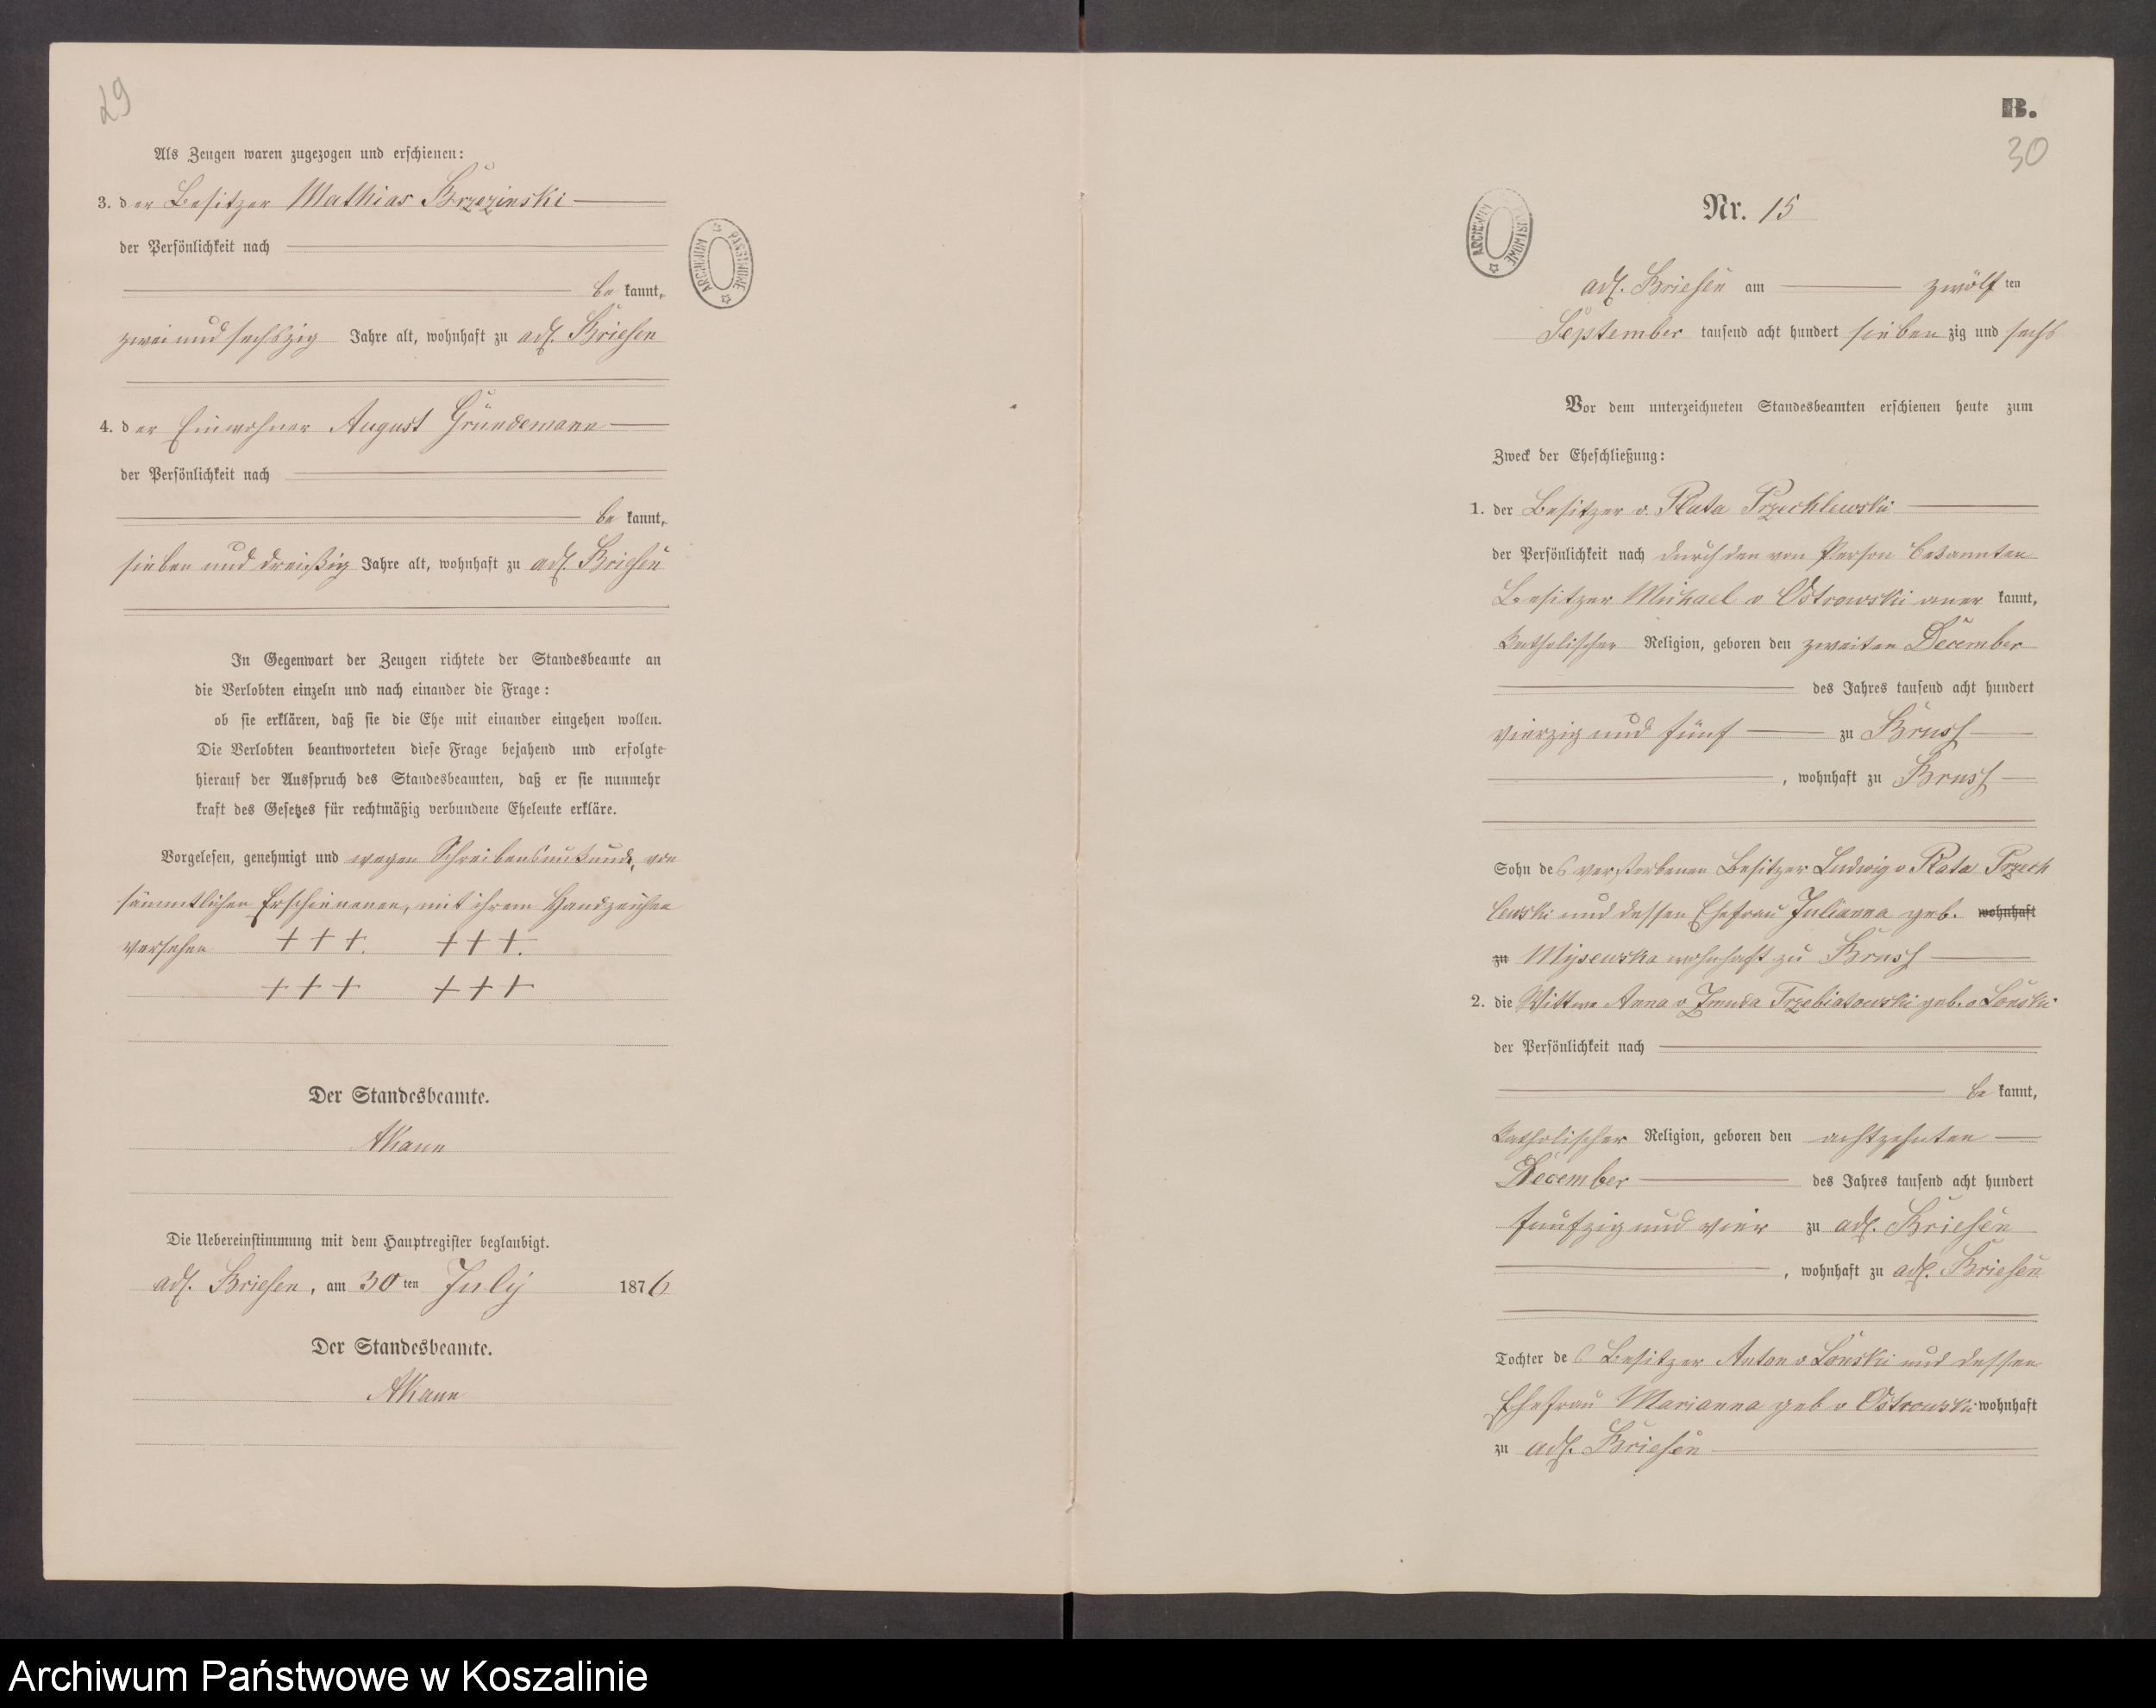 29
Als Zeugen waren zugezogen und erschienen:
3. der Besitzer Mathias Brzezinski
der Persönlichkeit nach
be kannt,
zwei und sechszig Jahre alt, wohnhaft zu adl. Briesen
4. der Einwohner August Gründemann
der Persönlichkeit nach
be kannt,
sieben und dreißig Jahre alt, wohnhaft zu adl. Briesen
In Gegenwart der Zeugen richtete der Standesbeamte an
die Verlobten einzeln und nach einander die Frage:
ob sie erklären, daß sie die Ehe mit einander eingehen wollen.
Die Verlobten beantworteten diese Frage bejahend und erfolgte
hierauf der Ausspruch des Standesbeamten, daß er sie nunmehr
kraft des Gesetzes für rechtmäßig verbundene Eheleute erkläre.
Vorgelesen, genehmigt und wegen Schreibensunkunde, von
sämmtlichen Erschienenen, mit ihrem Handzeichen
versehen +++. +++.
+++ +++
Der Standesbeamte.
AKann
Die Uebereinstimmung mit dem Hauptregister beglaubigt.
adl. Briesen, am 30 ten July 1876
Der Standesbeamte.
AKann
ARCHIWUM PAŃSTWOWE
B.
30
ARCHIWUM PAŃSTWOWE
Nr. 15
adl. Briesen am zwölf ten
September tausend acht hundert sieben zig und sechs
Vor dem unterzeichneten Standesbeamten erschienen heute zum
Zweck der Eheschließung:
1. der Besitzer v. Plata Przechlewski
der Persönlichkeit nach durch den von Person bekannten
Besitzer Michael v Ostrowski aner kannt,
katholischer Religion, geboren den zweiten December
des Jahres tausend acht hundert
vierzig und fünf zu Bruss
, wohnhaft zu Bruss
Sohn des verstorbenen Besitzer Ludwig v Plata Przech
lewski und dessen Ehefrau Julianna geb. wohnhaft
zu Mysewska wohnhaft zu Bruss
2. die Wittwe Anna v Zmuda Trzebiatowski geb. v Lonski
der Persönlichkeit nach
be kannt,
katholischer Religion, geboren den achtzehnten
December des Jahres tausend acht hundert
fünfzig und vier zu adl. Briesen
, wohnhaft zu adl. Briesen
Tochter des Besitzer Anton v Lonski und dessen
Ehefrau Marianna geb v Ostrowski wohnhaft
zu adl. Briesen
Archiwum Państwowe w Koszalinie